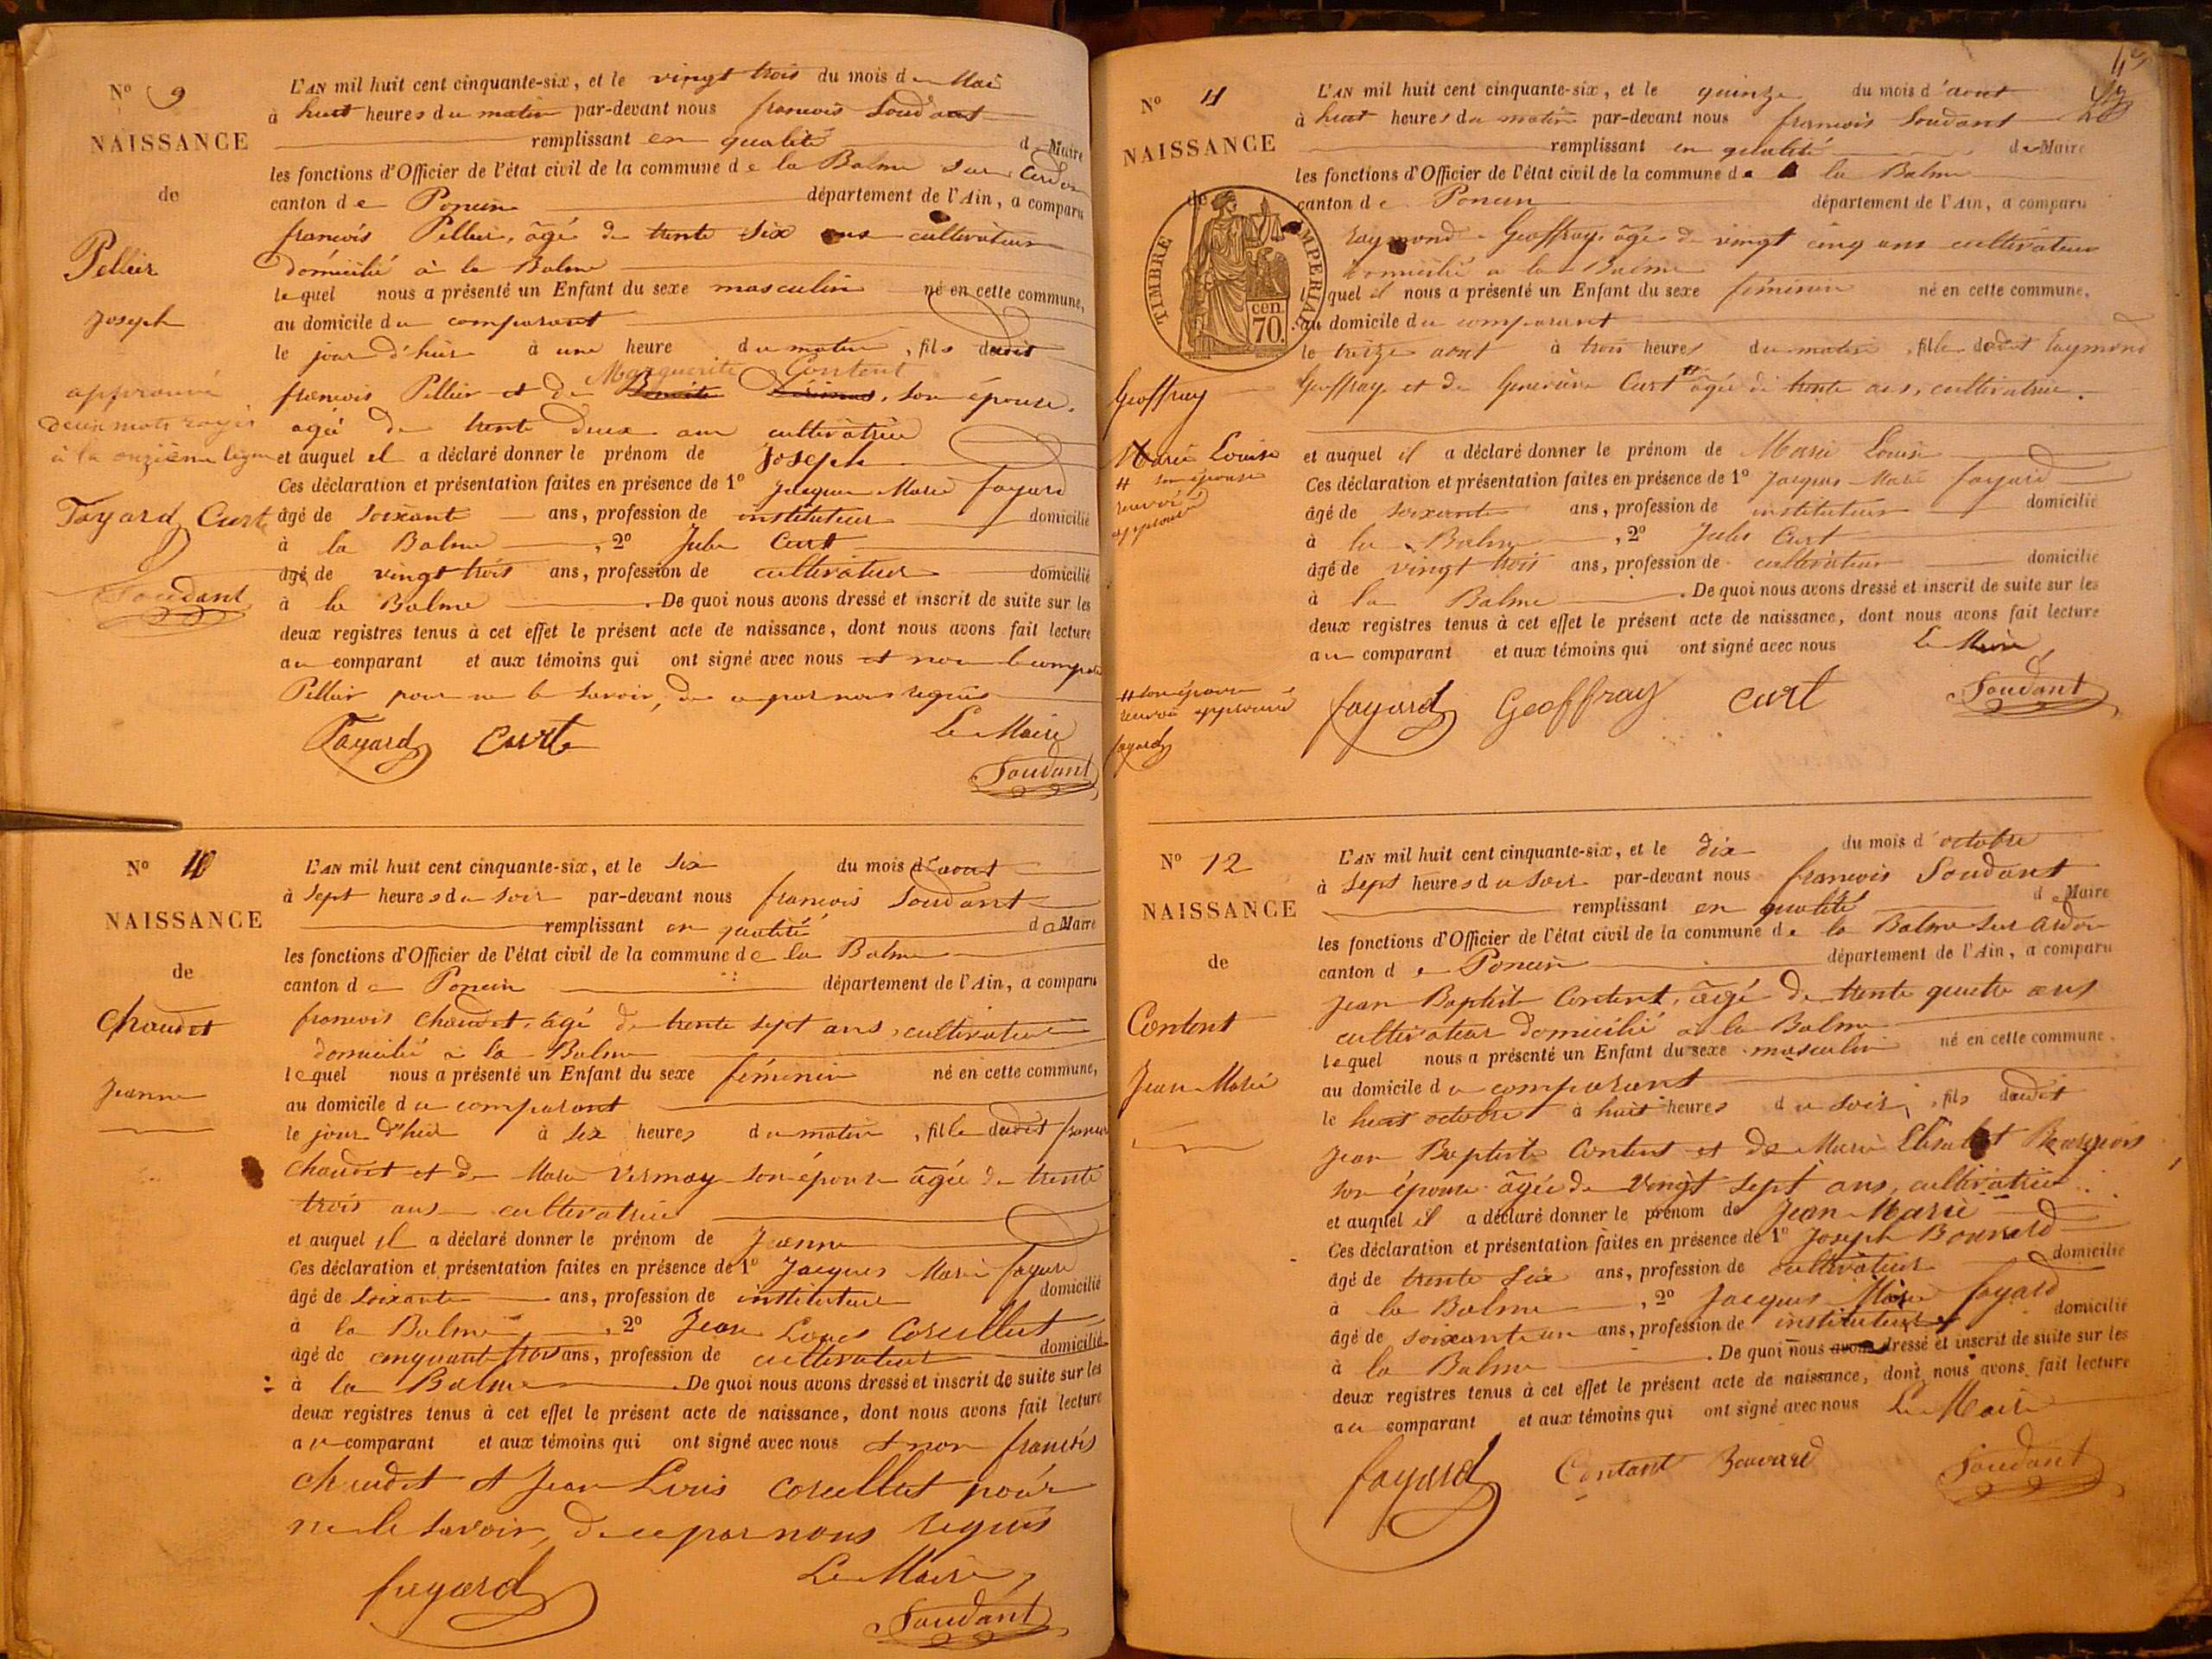 N° 9
NAISSANCE
de
Pellier
Joseph
approuvé
deux mots rayés
à la onzième ligne
Fayard Curt
Soudant
L'AN mil huit cent cinquante-six, et le vingt trois du mois de Mai
à huit heures du matin par-devant nous francois Soudant
remplissant en qualité de Maire
les fonctions d'Officier de l'état civil de la commune de la Balme sur Cerdon
canton de Poncin département de l'Ain, a comparu
francois Pellier, âgé de trente six ans cultivateur
domicilié à la Balme
lequel nous a présenté un Enfant du sexe masculin né en cette commune,
au domicile du comparant
le jour d'hier à une heure du matin, fils dudit
Marguerite Content
francois Pellier et de son épouse,
agée de trente deux ans cultivatrice
et auquel il a déclaré donner le prénom de Joseph
Ces déclaration et présentation faites en présence de 1° Jacques Marie fayard
âgé de soixante ans, profession de instituteur domicilié
à la Balme, 2° Jules Curt
âgé de vingt trois ans, profession de cultivateur domicilié
à la Balme. De quoi nous avons dressé et inscrit de suite sur les
deux registres tenus à cet effet le présent acte de naissance, dont nous avons fait lecture
au comparant et aux témoins qui ont signé avec nous et non le
Pellier pour ne le savoir, de ce par nous requis
Le Maire
Fayard Curt
Soudant
N° 10
NAISSANCE
de
Chaudet
Jeanne
L'AN mil huit cent cinquante-six, et le six du mois d'aout
à sept heures du soir par-devant nous francois Soudant
remplissant en qualité de Maire
les fonctions d'Officier de l'état civil de la commune de la Balme
canton de Poncin département de l'Ain, a comparu
francois Chaudet, âgé de trente sept ans, cultivateur
domicilié à la Balme
lequel nous a présenté un Enfant du sexe féminin né en cette commune,
au domicile du comparant
le jour d'hier à six heures du matin, fille dudit francois
Chaudet et de Marie Vermay son épouse âgée de trente
trois ans cultivatrice
et auquel il a déclaré donner le prénom de Jeanne
Ces déclaration et présentation faites en présence de 1° Jacques Marie fayard
âgé de soixante ans, profession de instituteur domicilié
à la Balme, 2° Jean Louis
âgé de cinquante trois ans, profession de cultivateur domicilié
à la Balme. De quoi nous avons dressé et inscrit de suite sur les
deux registres tenus à cet effet le présent acte de naissance, dont nous avons fait lecture
au comparant et aux témoins qui ont signé avec nous et non francois
chaudet et Jean Louis pour
ne le savoir, de ce par nous requis
Le Maire,
fayard
Soudant
N° 11
NAISSANCE
de
TIMBRE IMPERIAL
cen.
70.
Geoffray
Marie Louise
# son épouse
renvoi
approuvé
# son épouse
renvoi approuvé
fayard
L'AN mil huit cent cinquante-six, et le quinze du mois d'aout
à huit heures du matin par-devant nous francois Soudant
remplissant en qualité de Maire
les fonctions d'Officier de l'état civil de la commune de la Balme
canton de Poncin département de l'Ain, a comparu
raymond Geoffray âgé de vingt cinq ans cultivateur
domicilié à la Balme
lequel il nous a présenté un Enfant du sexe féminin né en cette commune,
au domicile du comparant
le treize aout à trois heures du matin, fille dudit raymond
Geoffray et de Geneviève Curt # âgée de trente ans, cultivatrice.
et auquel il a déclaré donner le prénom de Marie Louise
Ces déclaration et présentation faites en présence de 1° Jacques Marie fayard
âgé de soixante ans, profession de instituteur domicilié
à la Balme, 2° Jules Curt
âgé de vingt trois ans, profession de cultivateur domicilié
à la Balme. De quoi nous avons dressé et inscrit de suite sur les
deux registres tenus à cet effet le présent acte de naissance, dont nous avons fait lecture
au comparant et aux témoins qui ont signé avec nous Le Maire,
fayard Geoffray Curt Soudant
N° 12
NAISSANCE
de
Content
Jean Marie
L'AN mil huit cent cinquante-six, et le dix du mois d'octobre
à sept heures du soir par-devant nous francois Soudant
remplissant en qualité de Maire
les fonctions d'Officier de l'état civil de la commune de la Balme sur
canton de Poncin département de l'Ain, a comparu
Jean Baptiste Content, âgé de trente quatre ans
cultivateur domicilié à la Balme
lequel nous a présenté un Enfant du sexe masculin né en cette commune,
au domicile du comparant
le huit octobre à huit heures du soir, fils dudit
Jean Baptiste Content et de Marie
son épouse âgée de vingt sept ans, cultivatrice
et auquel il a déclaré donner le prénom de Jean Marie
Ces déclaration et présentation faites en présence de 1° Joseph Bouvard
âgé de trente six ans, profession de cultivateur domicilié
à la Balme, 2° Jacques Marie fayard
âgé de soixante un ans, profession de instituteur domicilié
à la Balme. De quoi nous avons dressé et inscrit de suite sur les
deux registres tenus à cet effet le présent acte de naissance, dont nous avons fait lecture
au comparant et aux témoins qui ont signé avec nous Le Maire
fayard Contant Bouvard Soudant